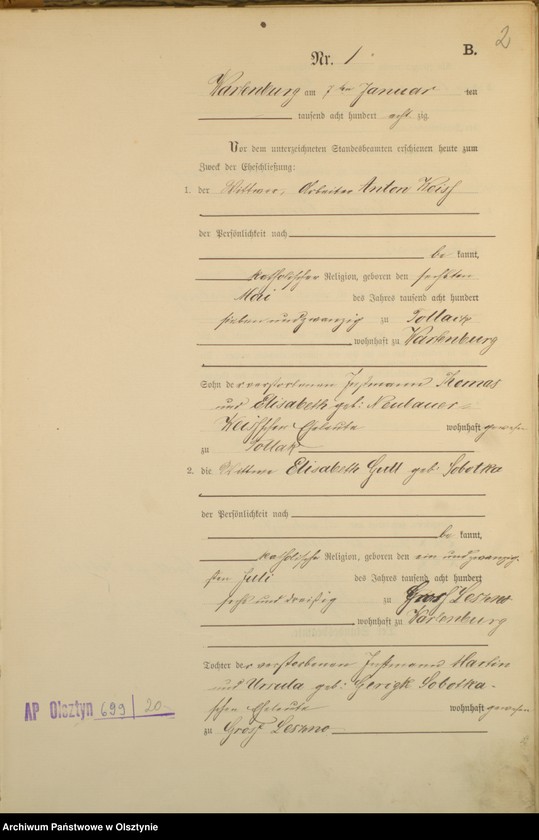 2
B.
Nr. 1.
Wartenburg am 7ten Januar ten
tausend acht hundert acht zig.
Vor dem unterzeichneten Standesbeamten erschienen heute zum
Zweck der Eheschließung:
1. der Wittwer, Arbeiter Anton
der Persönlichkeit nach
be kannt,
katholischer Religion, geboren den sechsten
Mai des Jahres tausend acht hundert
sieben und zwanzig zu Tollack
wohnhaft zu Wartenburg
Sohn der verstorbenen Instmann Thomas
und Elisabeth geb: Neubauer-
schen Eheleute wohnhaft gewesen
zu Tollak
2. die Wittwe Elisabeth Gull geb: Sobotka
der Persönlichkeit nach
be kannt,
katholische Religion, geboren den ein und zwanzig-
sten Juli des Jahres tausend acht hundert
sechs und dreißig zu Groß Leszno
wohnhaft zu Wartenburg
Tochter der verstorbenen Instmann Martin
und Ursula geb: Gerigk Sobotka-
schen Eheleute wohnhaft gewesen
zu Groß Leszno
AP Olsztyn 699 / 20
Archiwum Państwowe w Olsztynie